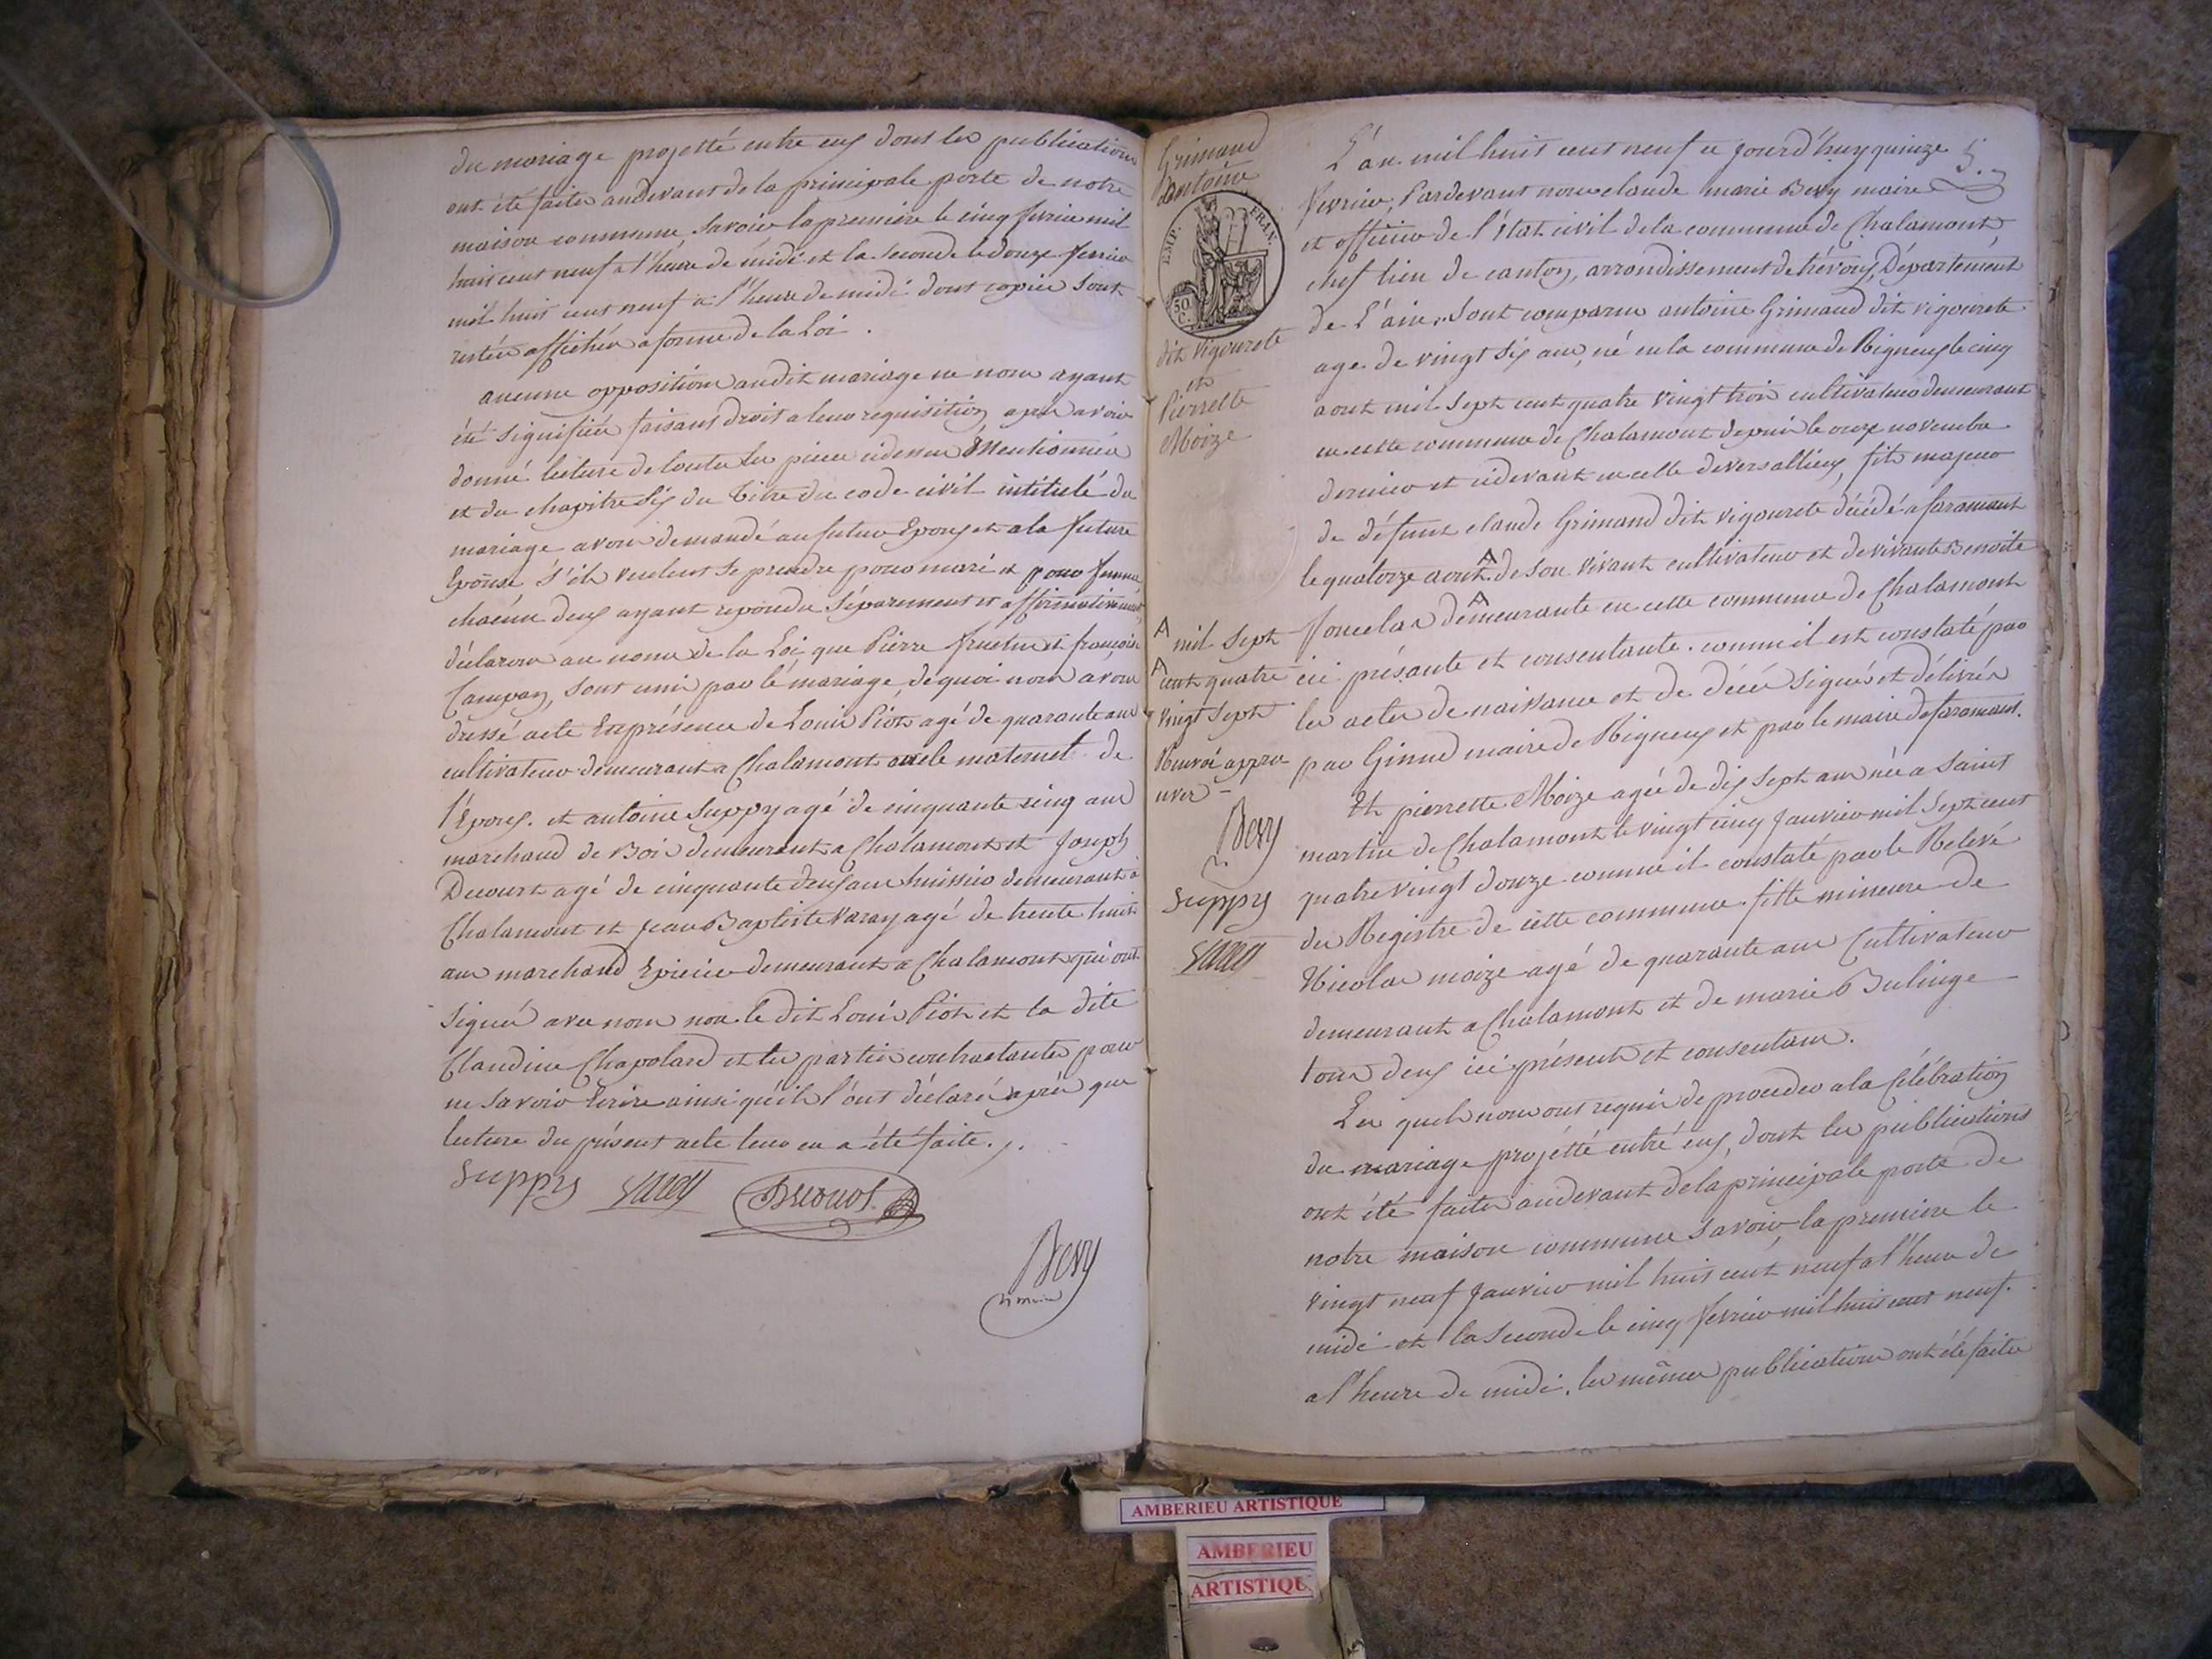 du mariage projetté entre eux dont les publications
ont été faites audevant de la principale porte de notre
maison commune, savoir la premiere le cinq fevrier mil
huit cent neuf a l'heure de midi et la seconde le douze fevrier
mil huit cent neuf a l'heure de midi dont copies sont
restées affichées a forme de la Loi.
aucune opposition audit mariage ne nous ayant
été signifiée faisant droit a leur requisition, apres avoir
donné lecture de toutes les pieces cidessus Mentionnées
et du chapitre six du Titre du code civil intitulé du
mariage avons demandé au futur Epoux et a la future
Epouse s'ils veulent se prendre pour mari et pour femme
chacun deux ayant repondu séparement et affirmativement,
déclarons au nom de la Loi que Pierre et françoise
sont unis par le mariage, de quoi nous avons
dressé acte En présence de Louis Piot agé de quarante ans
cultivateur demeurant a Chalamont oncle maternel de
l'Epoux. et antoine Suppy agé de cinquante cinq ans
marchand de Bois demeurant a Chalamont et Joseph
Decourt agé de cinquante deux ans huissier demeurant à
Chalamont et Jean Baptiste Varay agé de trente huit
ans marchand Epicier demeurant a Chalamont qui ont
signés avec nous non le dit Louis Piot et la dite
Claudine Chapolard et les parties contractantes pour
ne savoir Ecrire ainsi qu'ils l'ont déclaré après que
lecture du présent acte leur en a été faite.
Suppy Varay
Bevy
maire
Grimaud
antoine
EMP. FRAN.
50 C.
dit vigourete
et
Pierrette
Moize
A mil sept
A cent quatre
vingt sept
Renvoi appro
uver
Bevy
Suppy
Varay
5.
L'an mil huit cent neuf ce jourd'huy quinze
fevrier, Pardevant nous claude marie Bevy maire
et officier de l'état civil de la commune de Chalamont,
chef lieu de canton, arrondissement de trévoux, Département
de L'ain, sont comparus antoine Grimaud dit vigourete
age de vingt six ans, né en la commune de Rigneux le cinq
aout mil sept cent quatre vingt trois cultivateur demeurant
en cette commune de Chalamont depuis le onze novembre
dernier et cidevant en celle de versallieux, fils majeur
de défunt claude Grimaud dit vigourete décédé a faramant
le quatorze aout A de son vivant cultivateur et de vivante Benoite
A demeurante en cette commune de Chalamont
ici présante et consentante. comme il est constaté par
les actes de naissance et de décès signés et délivrés
par maire de Rigneux et par le maire de faramant.
Et pierrette Moize agée de dix sept ans née a Saint
martin de Chalamont le vingt cinq janvier mil sept cent
quatre vingt douze comme il constaté par le Relevé
du Registre de cette commune. fille mineure de
Nicolas moize agé de quarante ans Cultivateur
demeurant a Chalamont et de marie Bulinge
tous deux ici présents et consentans.
Les quels nous ont requis de proceder a la célébration
du mariage projetté entre eux, dont les publications
ont été faites audevant de la principale porte de
notre maison commune savoir, la premiere le
vingt neuf janvier mil huit cent neuf a l'heure de
midi et la seconde le cinq fevrier mil huit cent neuf.
a l'heure de midi. les mêmes publications ont été faites
AMBERIEU ARTISTIQUE
AMBERIEU
ARTISTIQU